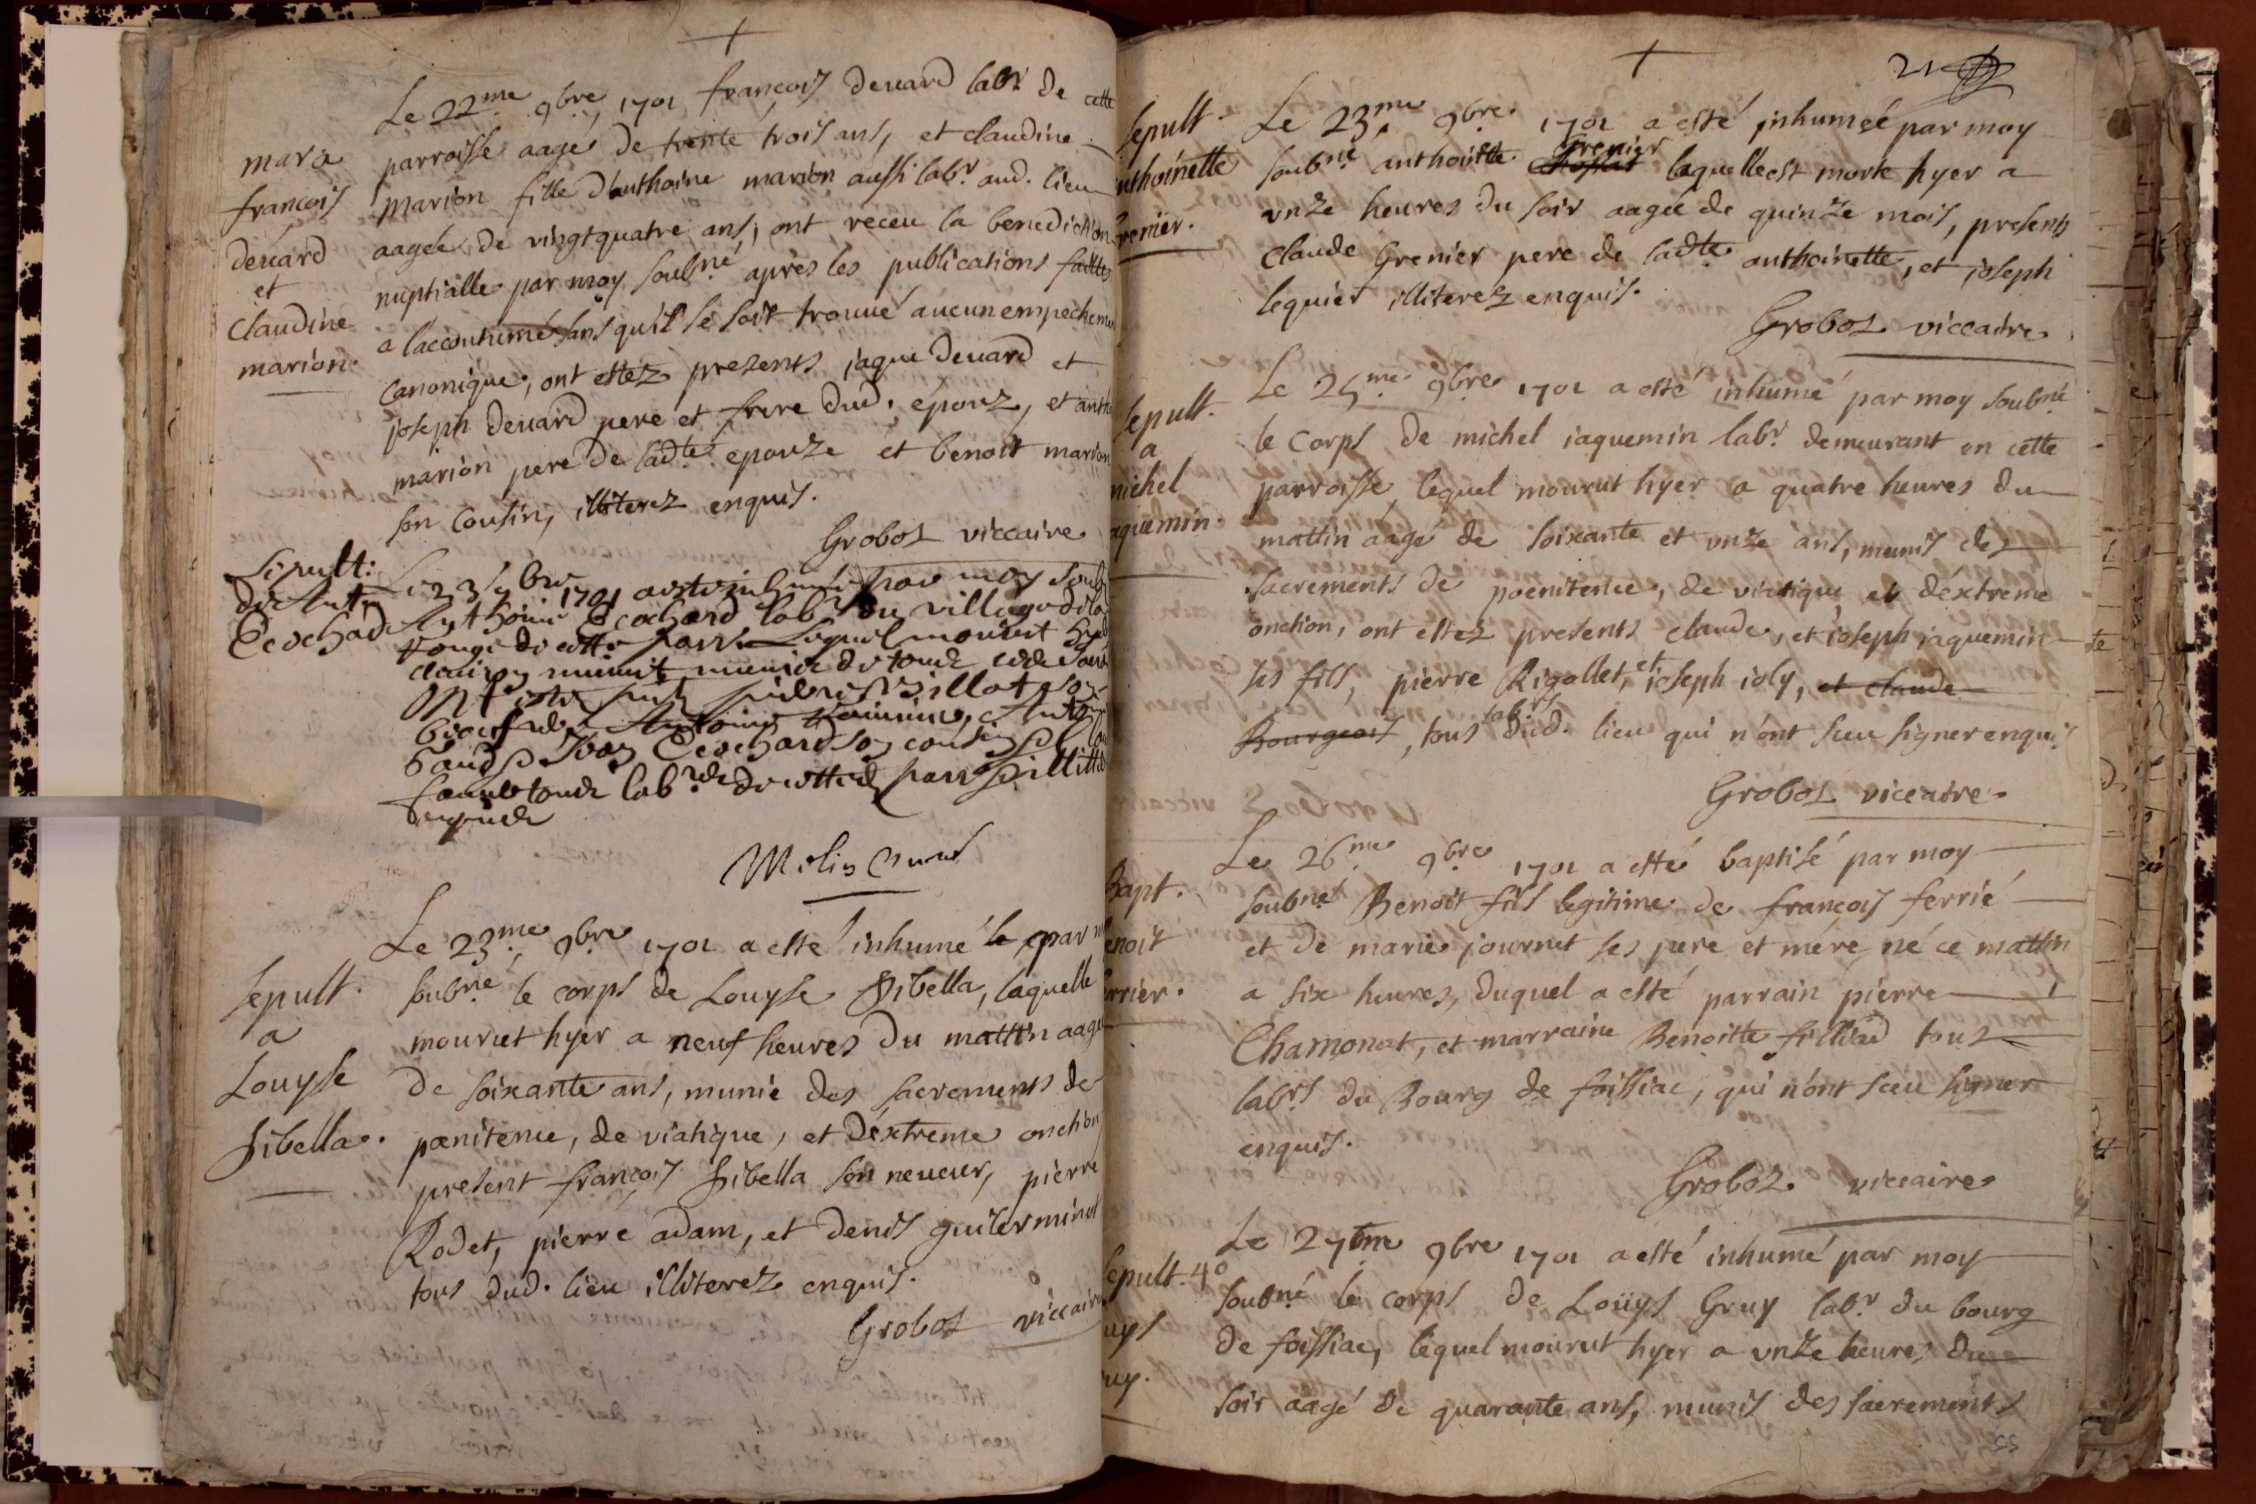 Le 22me 9bre 1701 françois deuard labr de cette
mara parroisse aagé de trente trois ans, et claudine
françois marion fille d'anthoine marion aussi labr aud. lieu
deuard aagée de vingtquatre ans, ont receu la benediction
et nuptialle par moy soubné après les publications faittes
Claudine a laccoutumé sans quil se soit trouué aucun empecheme
marion. canonique, ont ettez presents jaque deuard et
joseph deuard pere et frere dud. épouz, et anth
marion pere de ladte epouze et benoit marion
son cousin, illiterez enquis.
Groboz viccaire
Sepult:
de Ant
Cochard
Le 23 9bre 1701 a este inhumé par moy soub
Anthoine Cochard labr du village de la
de cette parr lequel mourut hy
munit de tous
son cousin
tous labrs de cette parr illitt
enquis
Le 23me 9bre 1701 a esté inhumé le par m
sepult. soubné le corps de Louyse Sibella, laquelle
a mourut hyer a neuf heures du mattin aage
Louyse de soixante ans, munie des sacrements de
Sibella. pœnitence, de viatique, et déxtreme onction
present françois Sibella son neueur, pierre
Rodet, pierre adam, et denis guilerminot
tous dud. lieu illiterez enquis.
Groboz viccaire
21
sepult. Le 23me 9bre 1701 a esté inhumée par moy
Grenier
nthoinette soubné anthoinette laquelle est morte hyer a
renier. vnze heures du soir aagée de quinze mois, presents
Claude Grenier pere de ladte anthoinette, et joseph
lequier illiterez enquis.
Groboz viccaire
Le 25me 9bre 1701 a esté inhumé par moy soubné
sepult. le corps de michel jaquemin labr demeurant en cette
a
michel parroisse, lequel mourut hyer a quatre heures du
aquemin. mattin aagé de soixante et vnze ans, munis des
sacrements de poenitence, de viatique et déxtreme
onction, ont ettez presents claude, et joseph jaquemin
ses fils, pierre Rigollet, et joseph joly, et claude
labrs
Bourgeois, tous dud. lieu qui n'ont sceu signer enquis
Groboz viccaire
Le 26me 9bre 1701 a etté baptisé par moy
Bapt. soubné Benoit fils legitime de françois ferrié
enoit et de marie journet ses pere et mére, né ce mattin
errier. a six heures, duquel a esté parrain pierre
Chamonat, et marraine Benoitte filliad tous
labrs du Bourg de foissiac, qui n'ont sceu signer
enquis.
Groboz viccaire
Le 27me 9bre 1701 a esté inhumé par moy
sepult. 4o soubné le corps de Loüys Gruy labr du bourg
uys de foissiac, lequel mourut hyer a vnze heures du
uy. soir aagé de quarante ans, munis des sacrements